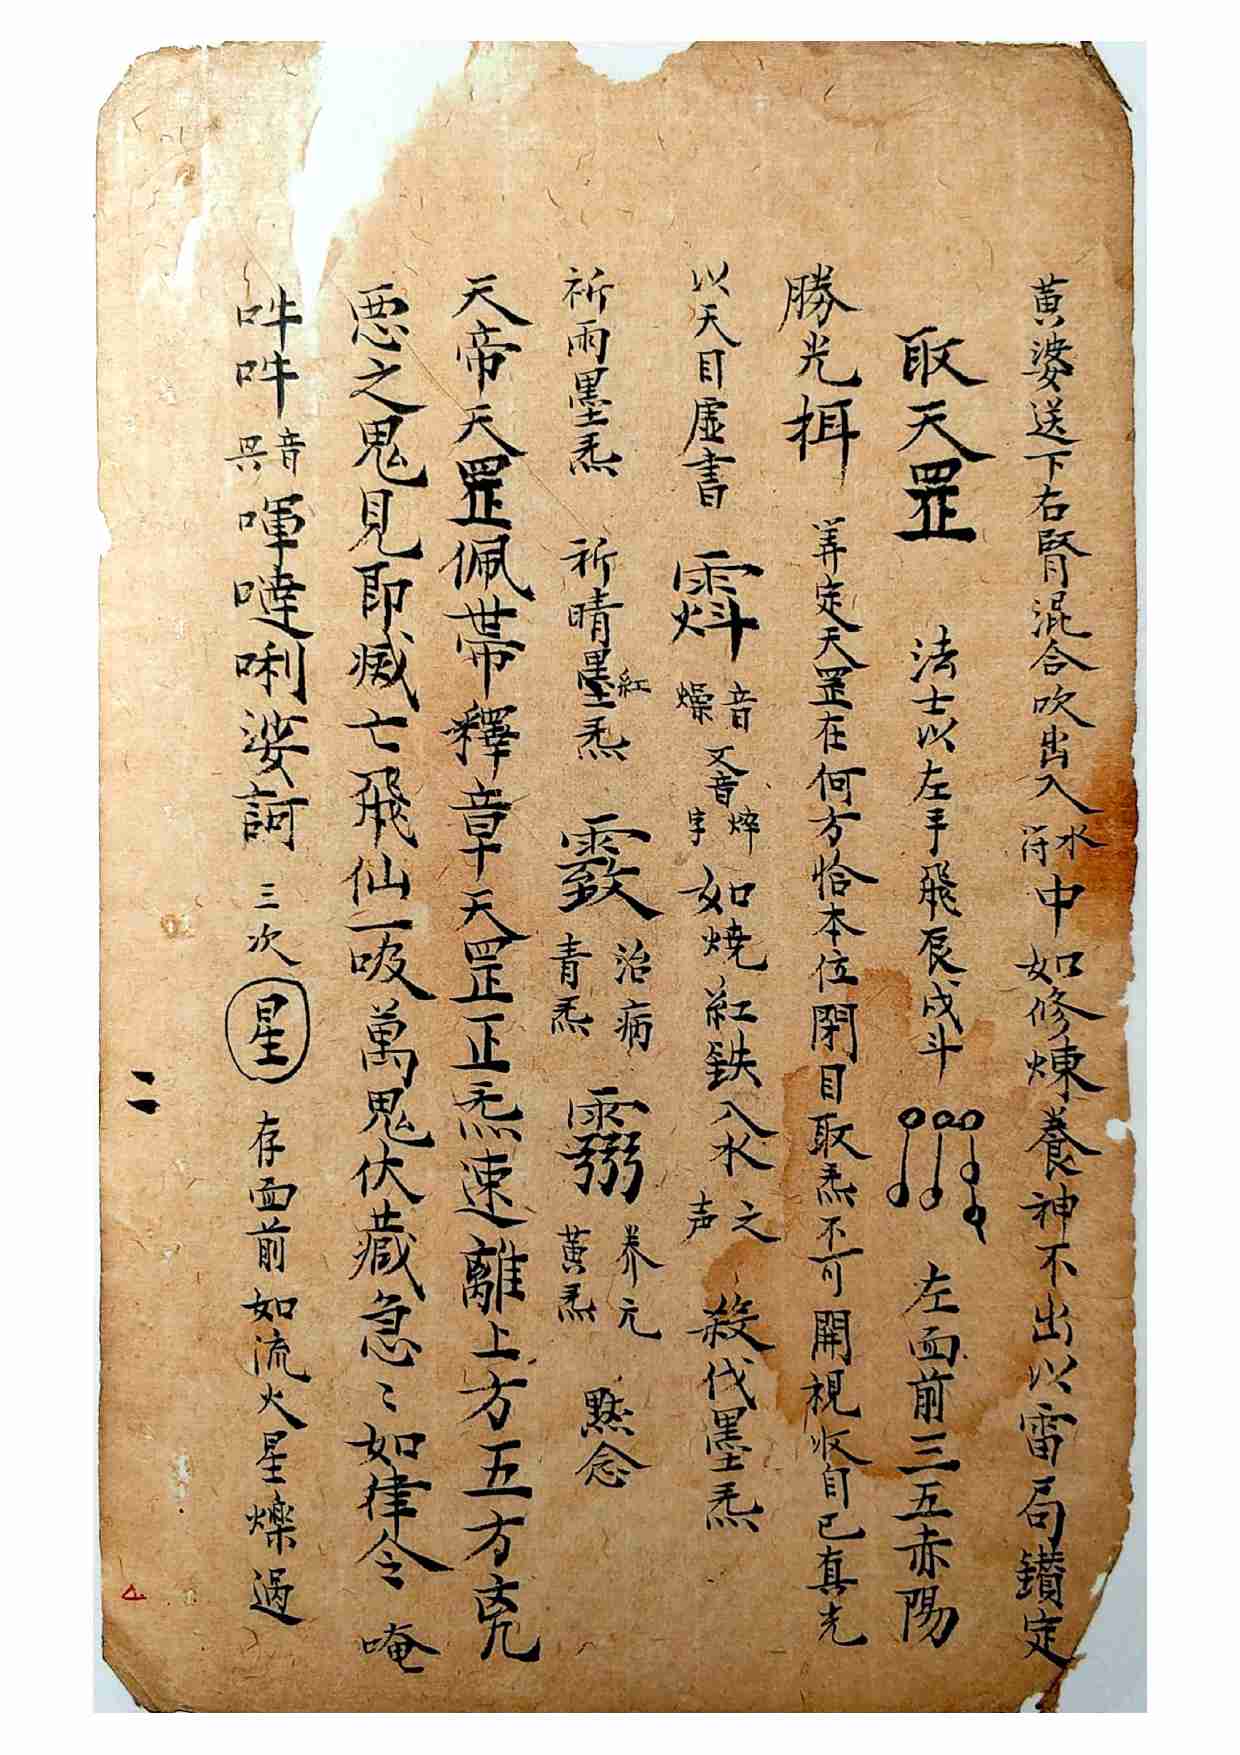 黄婆送下右腎混合吹出入水符中如修煉養神不出以雷局鑚定
取天罡 法士以左手飛辰戌斗 左面前三五赤陽
勝光 算定天罡在何方恰本位閉目取炁不可開視收自己真光
以天目虚書 音燥又音焠字如燒紅鉄入水之声 殺伐墨炁
祈雨墨炁 祈晴墨紅炁 治病青炁 养元黄炁 黙念
天帝天罡佩帶釋章天罡正炁速離上方五方兇
惡之鬼見即滅亡飛仙一吸萬鬼伏藏急〻如律令 唵
吽吽音吳 㖌噠唎娑訶 三次 星 存面前如流火星爍過
二